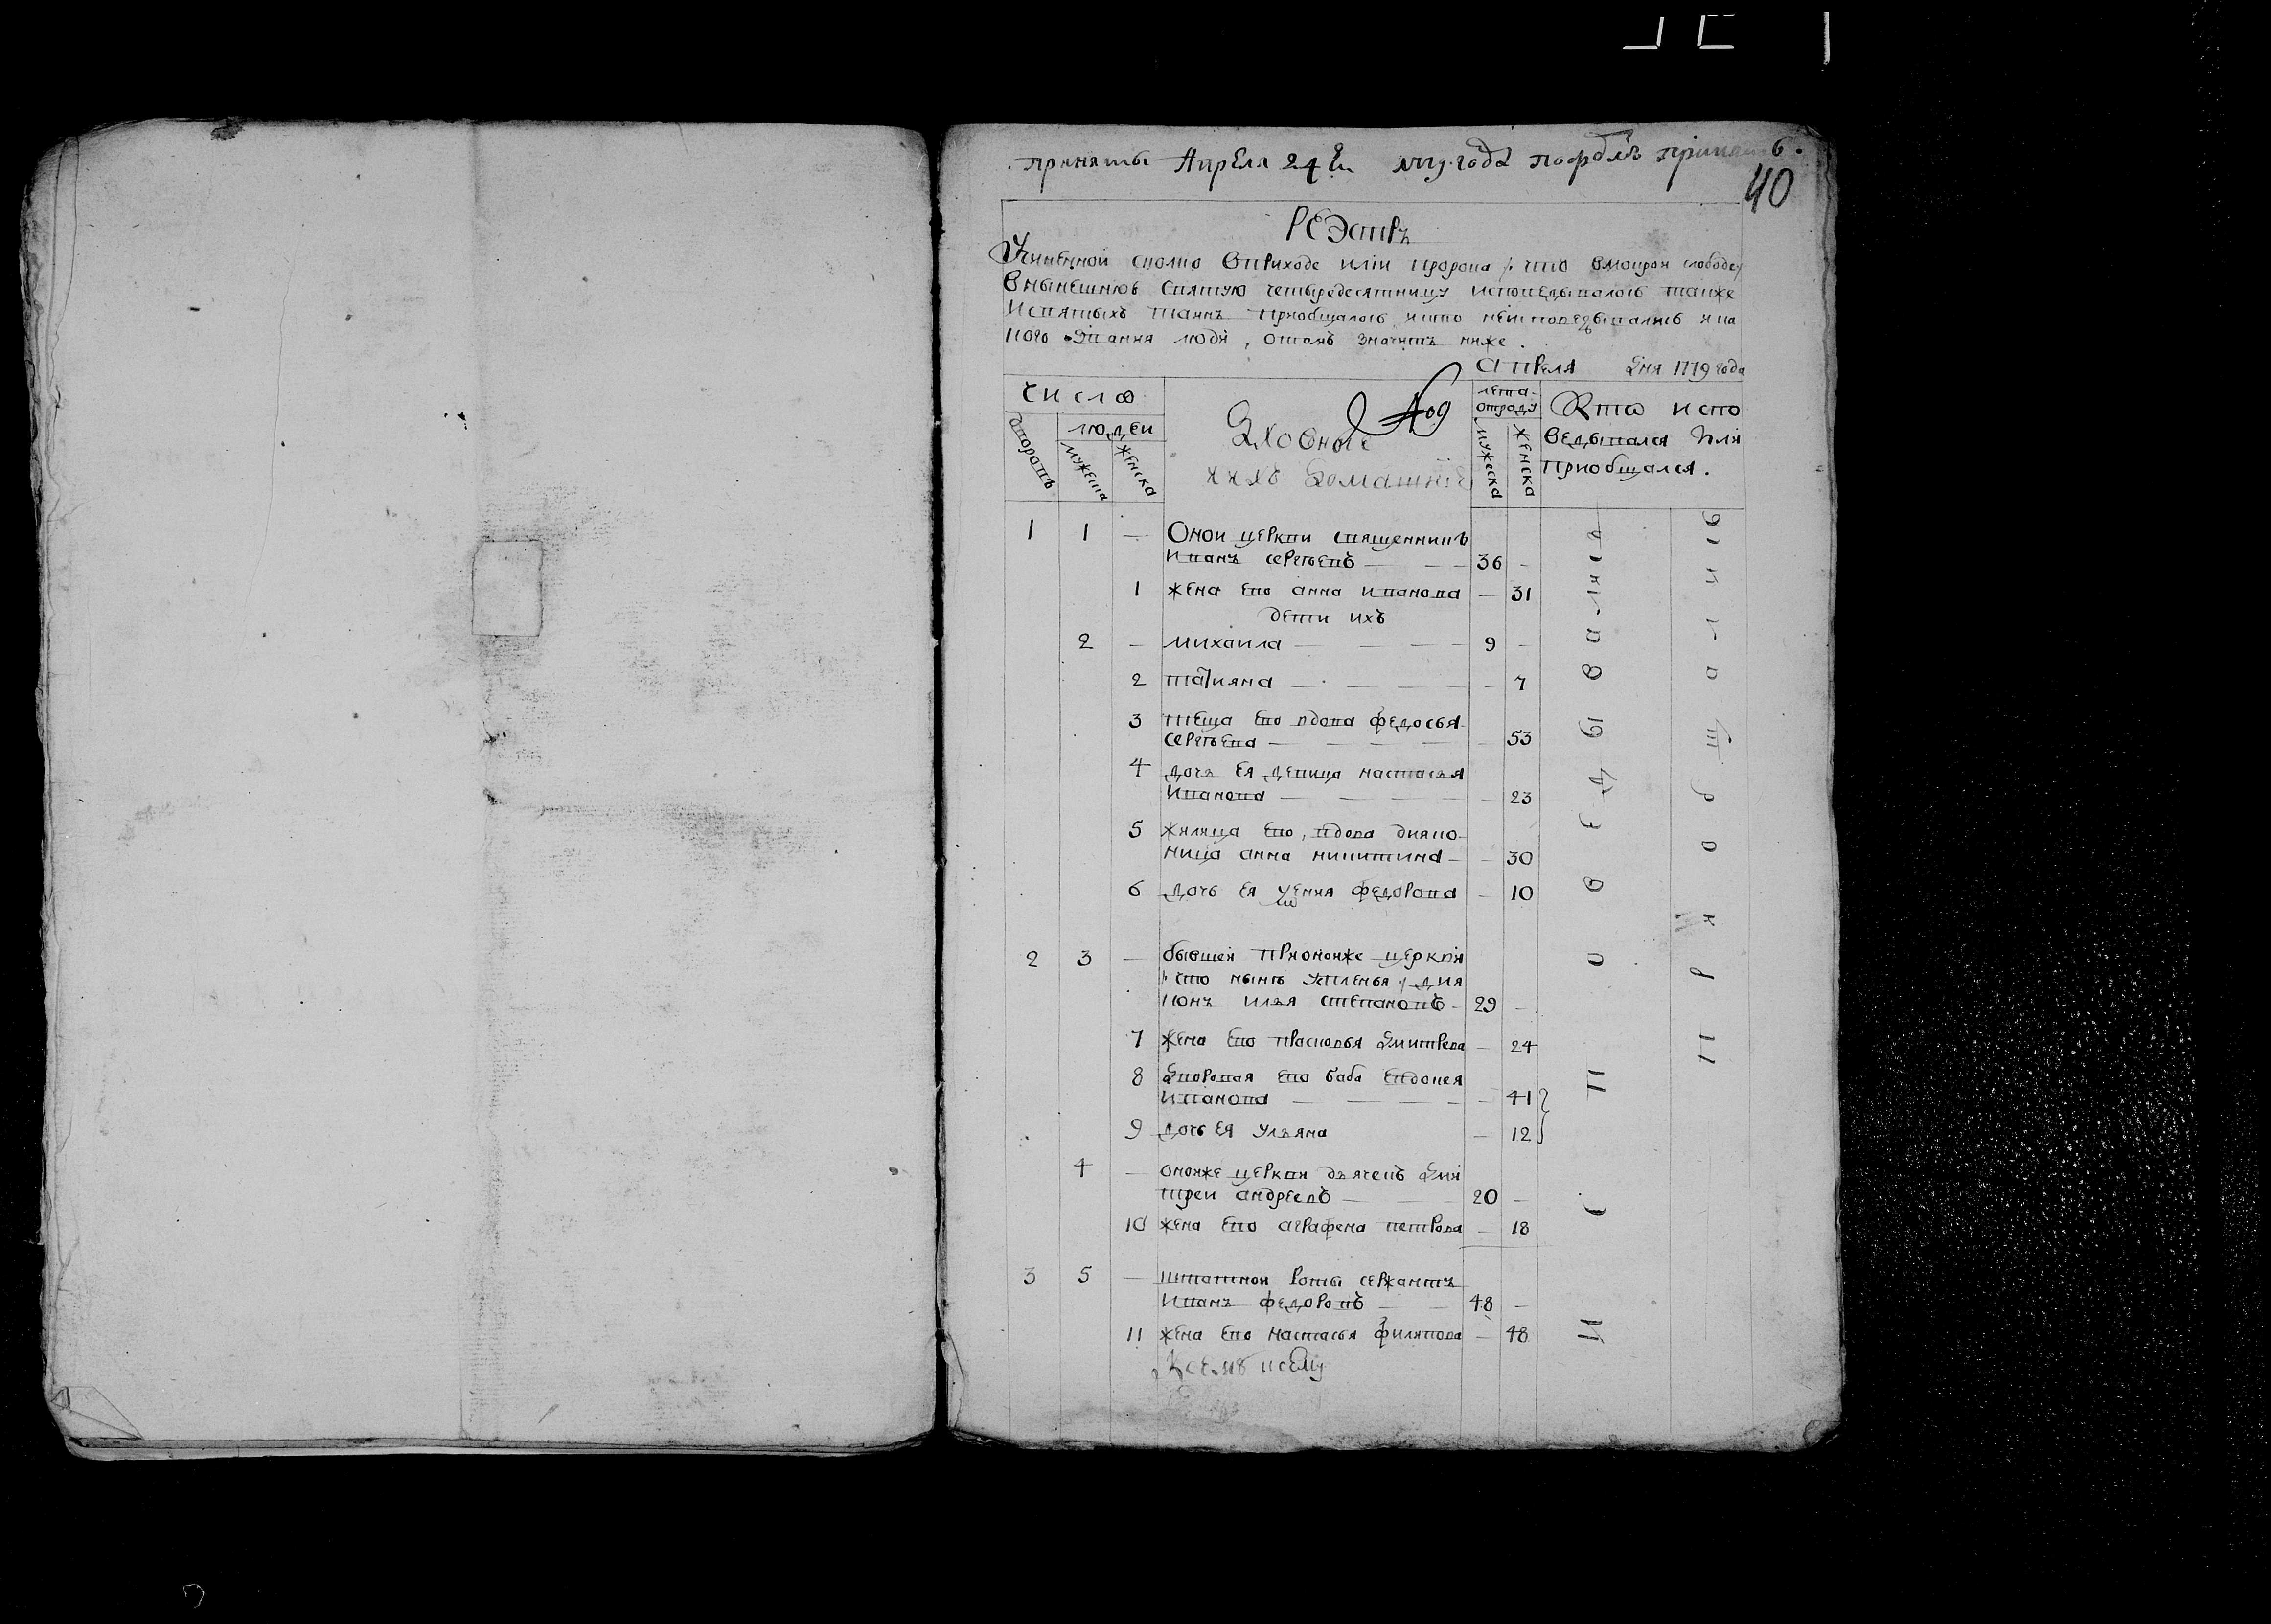 приняты Апреля 24 1779 года
40
РЕЭстръ
Учиненной сколко Вприходе илiи пророка /: что Вмокрои слободе:/
Внынешнюю святую четыредесятницу исповедывалось также
Исвятыхъ таинъ приобщалось, икто неисповедывались ика
кого звания люди, отомъ значитъ ниже.
Апреля дня 1779 года
число
людеи
дворовъ
мужеска
женска
Духовные
ихъ домашнiе
лета
отроду
мужеска
женска
Кто испо
ведывался или
приобщался.
1 1 — Онои церкви священникъ
Иванъ сергеевъ — 36 —
1 жена его анна иванова — 31
дети ихъ
2 — михаила — 9 —
2 татияна — 7
3 теща его вдова федосья
сергеева — 53
4 дочь Ея девица настасья
Иванова — 23
5 жилица его, вдова дияко
ница анна никитина — 30
6 дочь ея федорова — 10
2 3 — бывшеи приономже церкви
/: что ныне Успенья :/ дия
конъ илья степановъ — 29 —
7 жена его прасковья дмитрева — 24
8 дворовая его баба Евдокея
Иванова — 41
9 дочь ея Ульяна — 12
4 — ономже церкви дьячекъ дми
треи андреевъ — 20 —
10 жена его аграфена петрова — 18
3 5 — штатнои роты сержантъ
Иванъ федоровъ — 48 —
11 жена его настасья филипова — 48
Исповедывались
приобщались